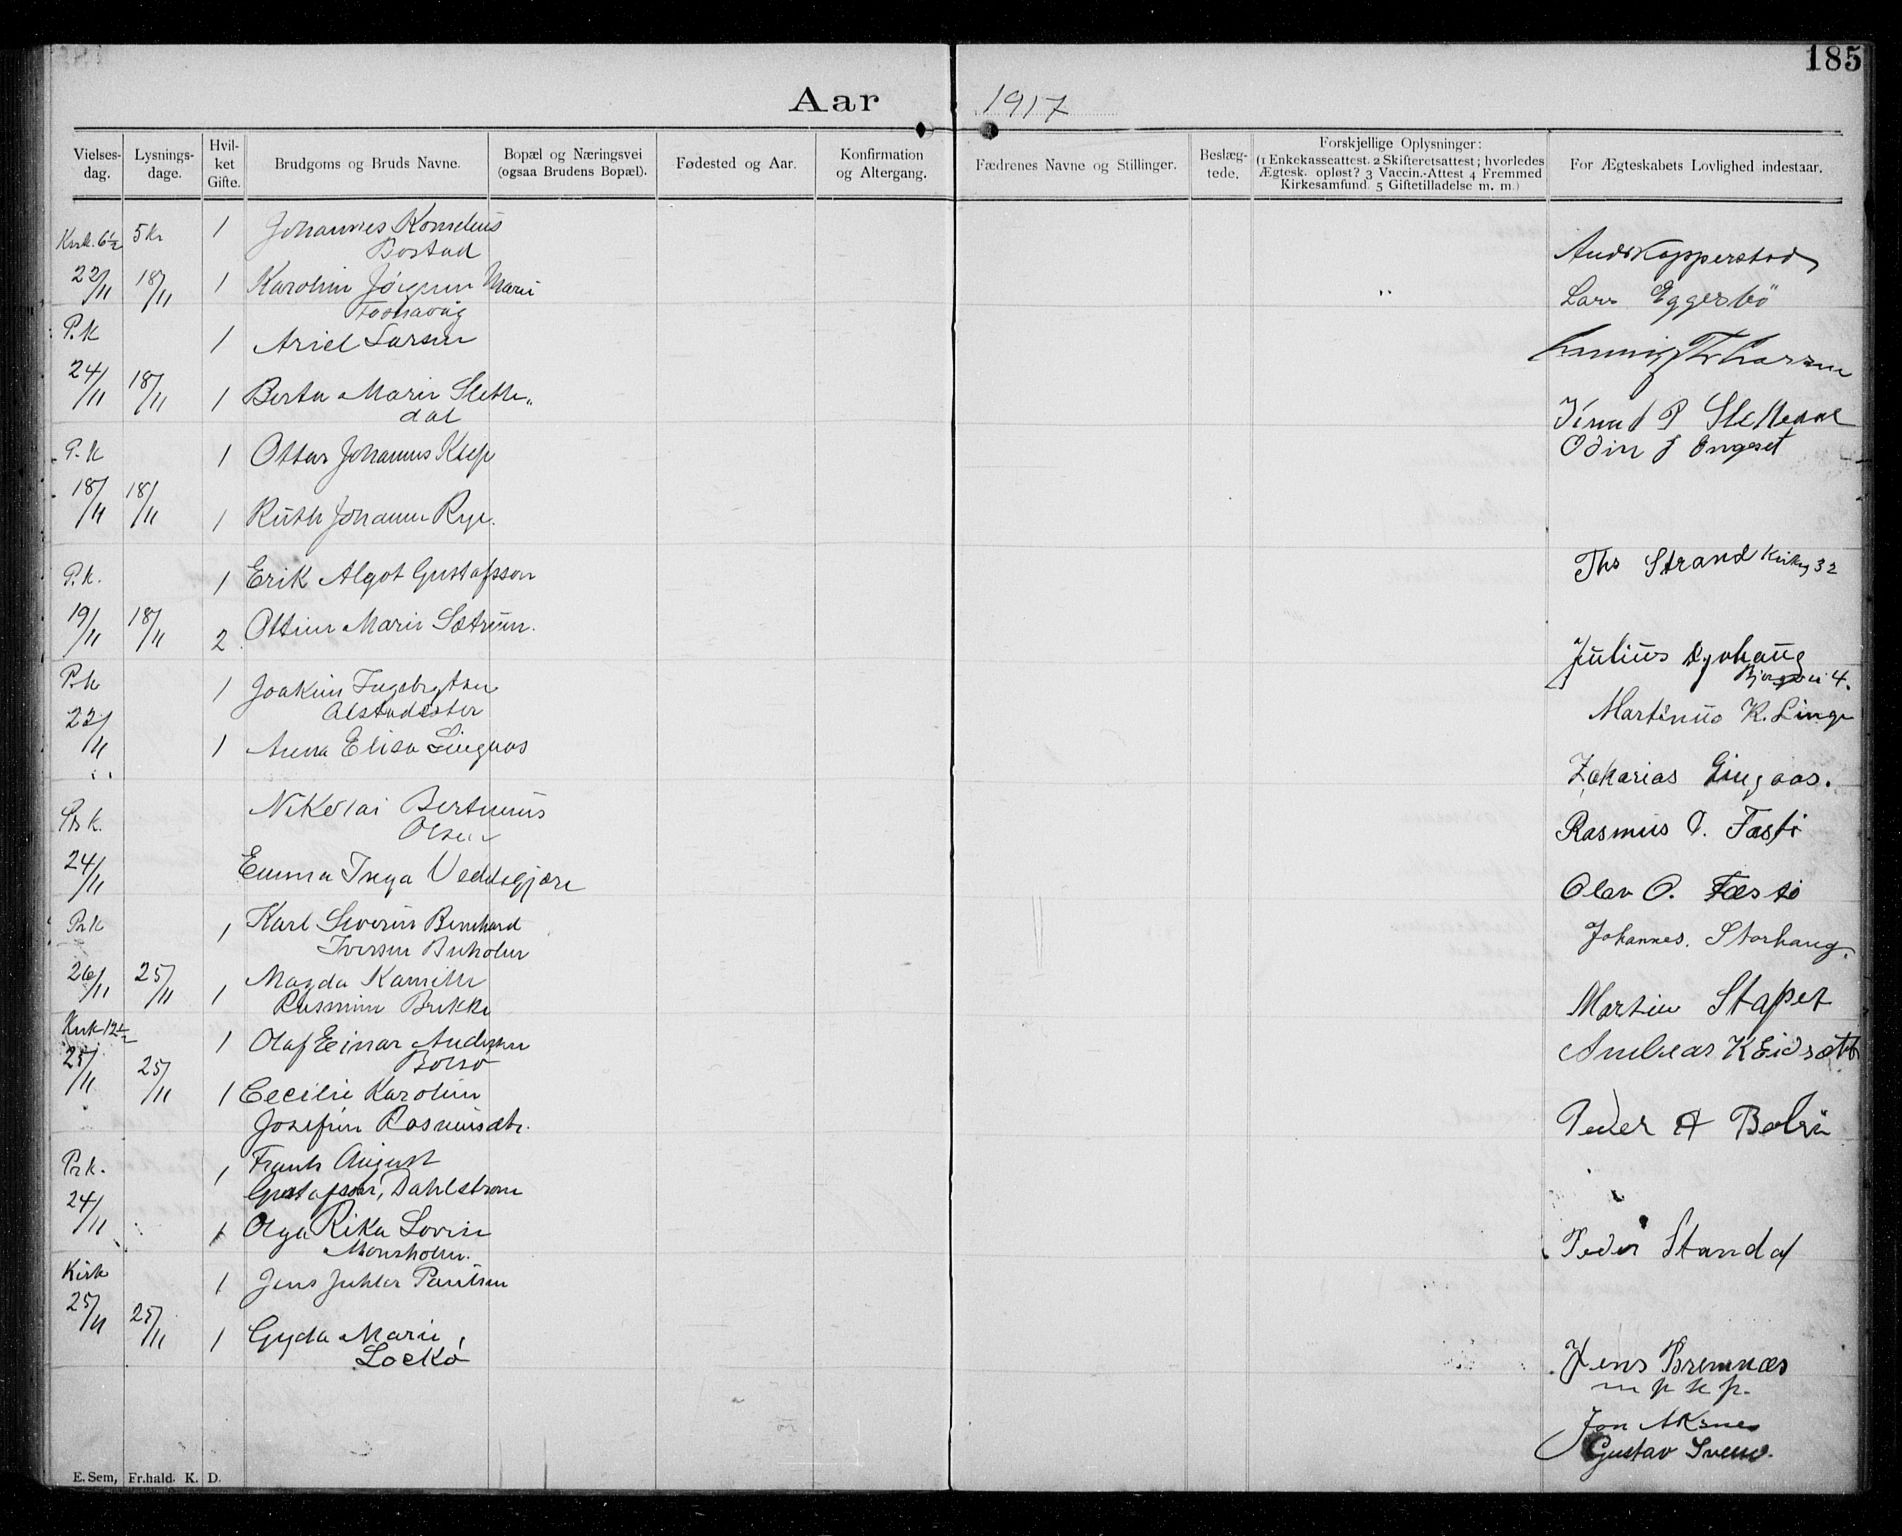 185
Aar 1917
Vielses-dag. Lysnings-dage. Hvil-ket Gifte. Brudgoms og Bruds Navne. Bopæl og Næringsvei (ogsaa Brudens Bopæl). Fødested og Aar. Konfirmation og Altergang. Fædrenes Navne og Stillinger. Beslæg-tede. Forskjellige Oplysninger: (1 Enkekasseattest. 2 Skifteretsattest; hvorledes Ægtesk. opløst? 3 Vaccin.-Attest 4 Fremmed Kirkesamfund. 5 Giftetilladelse m. m.) For Ægteskabets Lovlighed indestaar.
Kirk. 6½ 5 kr 1 Johannes Kornelius
Bostad
22/11 18/11 1 Karolin Jørgine Marie
Lars Eggesbö
P.k 1 Ariel Larsen
24/11 18/11 1 Berta Marie Slette-
dal
Knud P Slettedal
P.k 1 Ottar Johannes Klep
Odin J Engeset
18/11 18/11 1 Ruth Johanne Rye.
P.k. 1 Erik Algot Gustafsson
Ths Strand Kirkeg 32
19/11 18/11 2 Ottine Marie Sætrum.
Julius Dyvhaug
4.
P.k 1 Joakim Ingebrigtsen
Alstadsæter
Martinus K. Linge
22/11 1 Anna Elisa Lingaas
Zakarias Lingaas.
Pr k. Nikolai Bertinius
Olsen
Rasmus O. Fæstö
24/11 Emma Inga Veddegjære
Olav O. Fæstö
Prk 1 Karl Severin Bernhard
Iversen Buholm
Johannes. Storhaug.
26/11 25/11 1 Magda Kamille
Rasmine Brekke
Martin Stapet
Kirk 12½ 1 Olaf Einar Andersen
Bolsø
Andreas K Eidsæter
25/11 25/11 1 Cecilie Karoline
Josefine Rasmusdtr.
Peder A Bolsö
Prk. 1 Frants August
Gustafson, Dahlstrøm
24/11 1 Olga Rika Lovise
Monsholm.
Peder Standal
Kirk 1 Jens Juhler Paulsen
25/11 25/11 1 Gyda Marie
Lockø
Jens Bremnæs
m p k p.
Jon Aksnes
Gustav Svein.
E. Sem, Fr.hald. K. D.